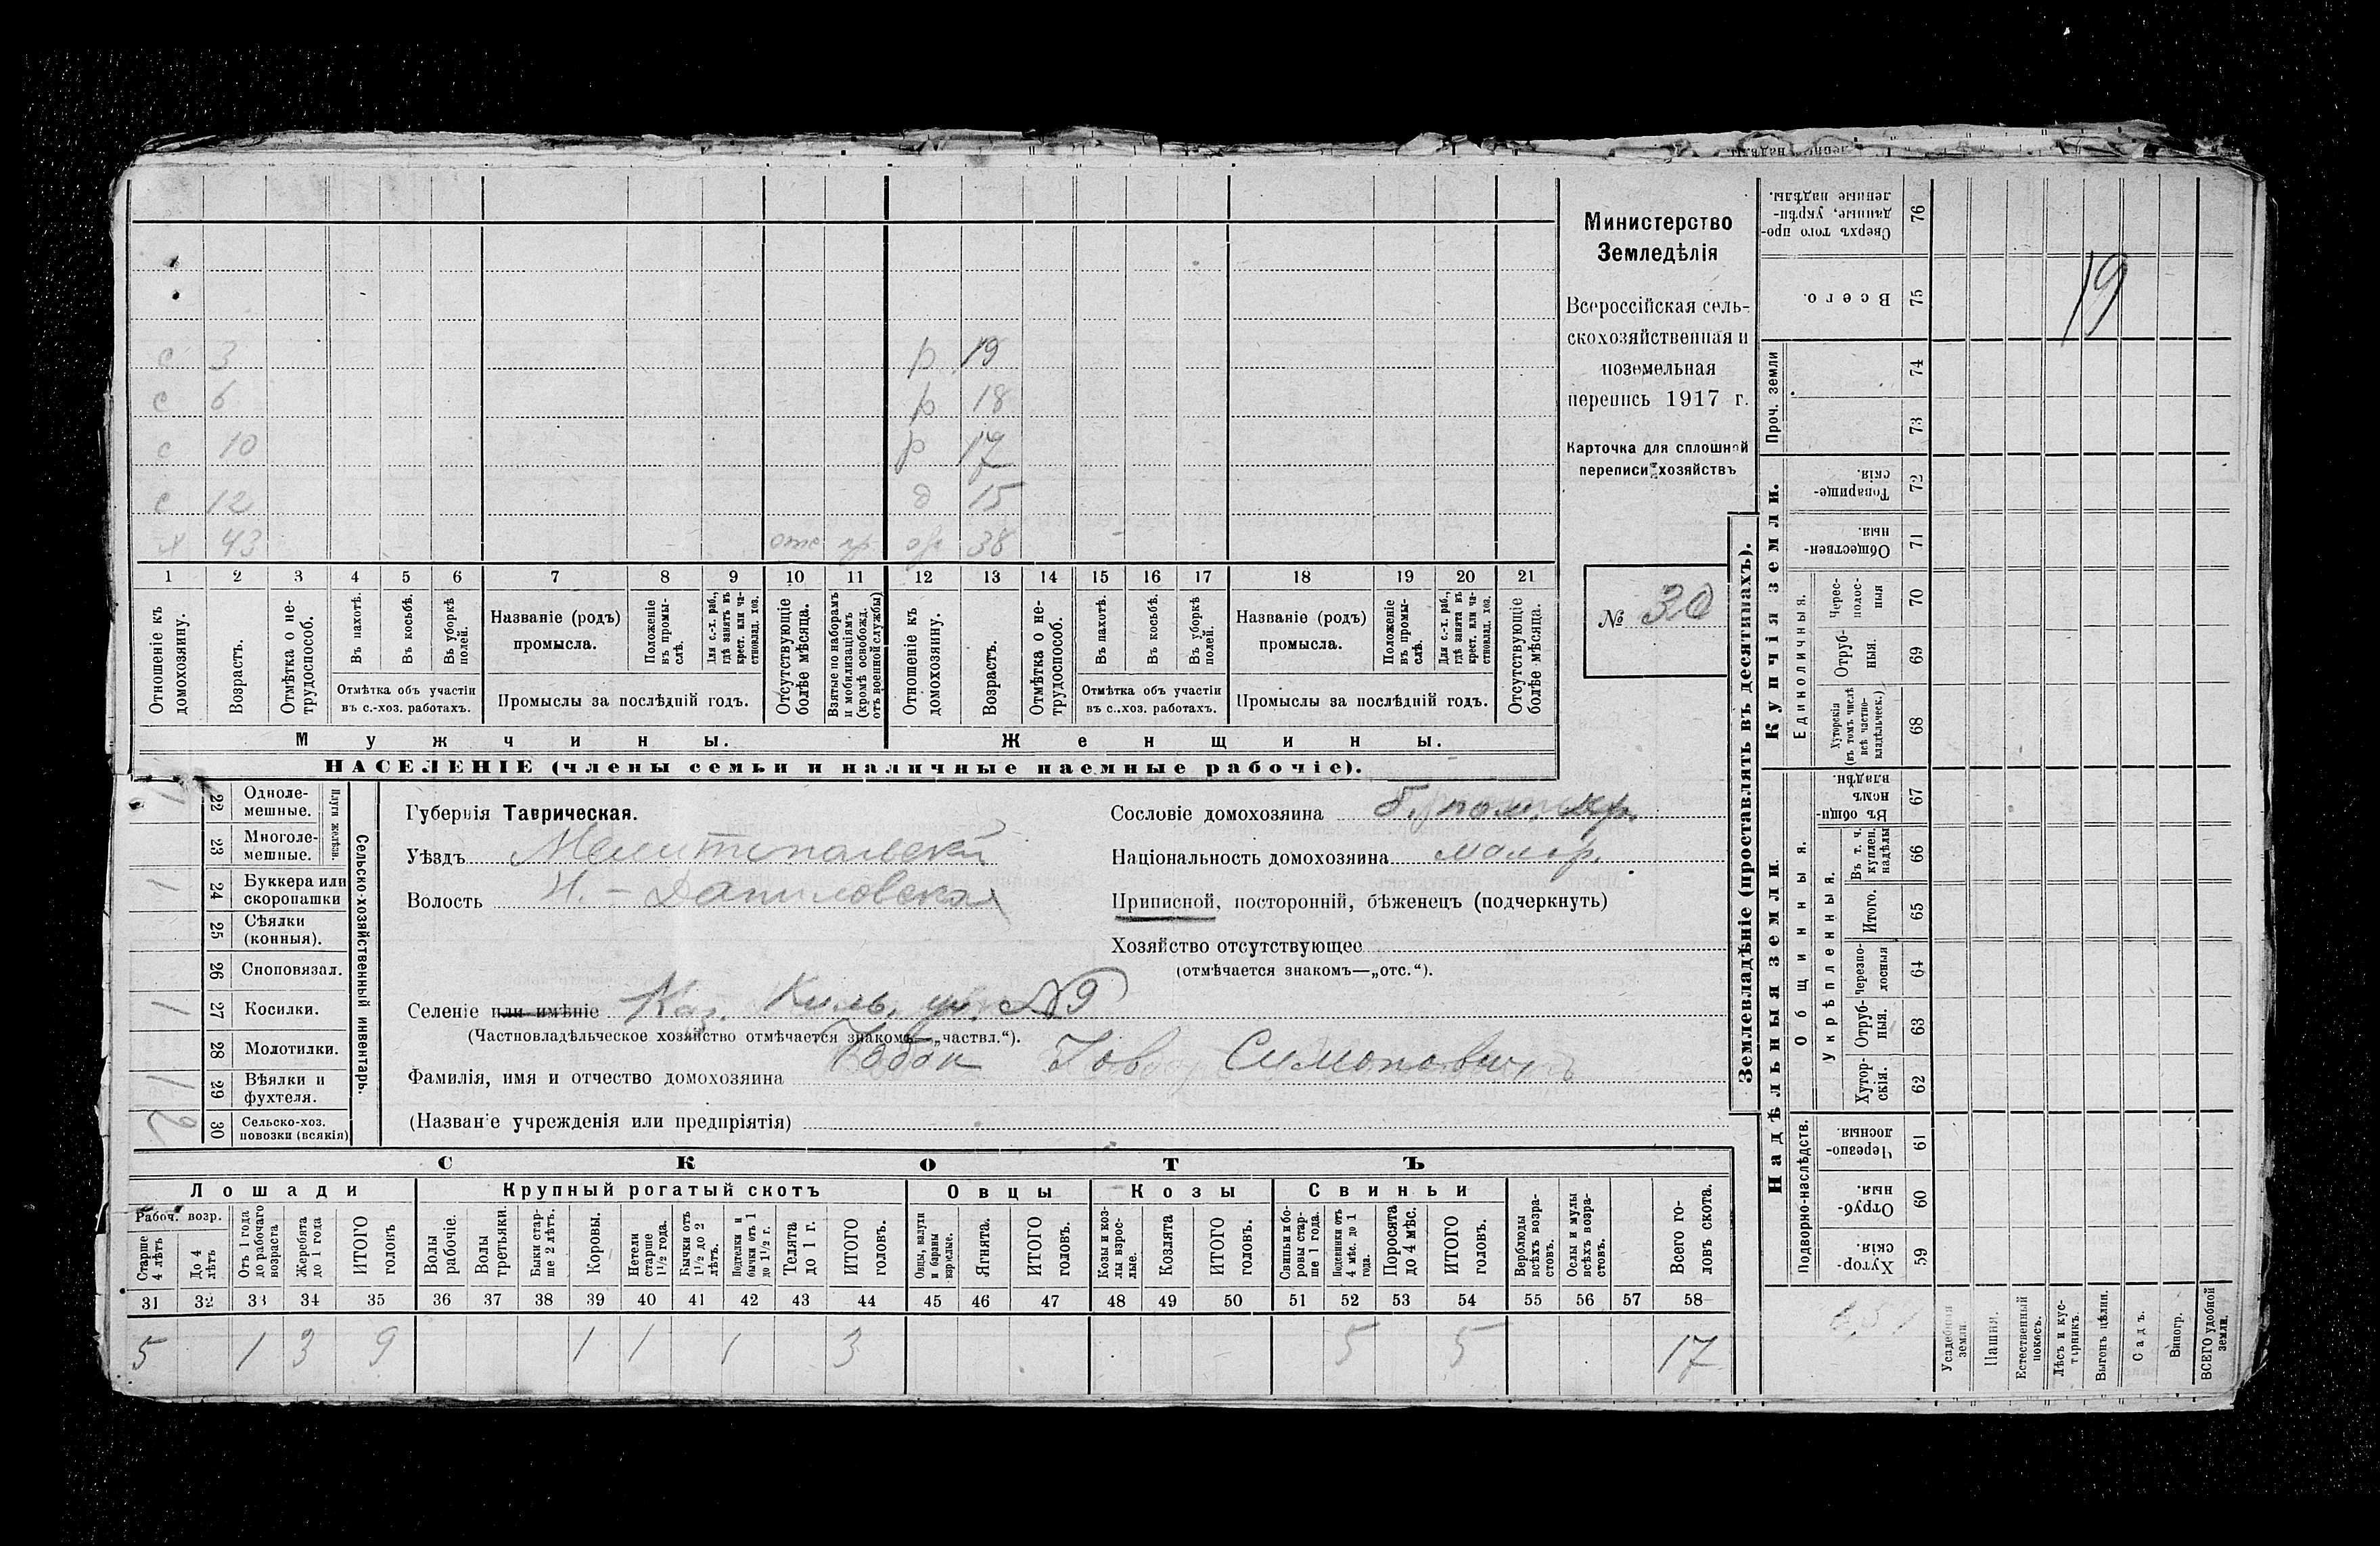 с 3 р 19
с 6 р 18
с 10 р 17
с 12 д 15
х 43 38
1 2 3 4 5 6 7 8 9 10 11 12 13 14 15 16 17 18 19 20 21
Отношеніе къ домохозяину.
Возрастъ.
Отмѣтка о не-трудоспособ.
Въ пахотѣ.
Въ косьбѣ.
Въ уборкѣ полей.
Отмѣтка объ участіи въ с.-хоз. работахъ.
Названіе (родъ) промысла.
Положеніе въ промы-слѣ.
Для с.-х. раб., гдѣ занятъ въ крест. или ча-стновлад. хоз.
Промыслы за послѣдній годъ.
Отсутствующіе болѣе мѣсяца.
Взятые по наборамъ и мобилизаціямъ (кромѣ освобожд. отъ военной службы)
Отношеніе къ домохозяину.
Возрастъ.
Отмѣтка о не-трудоспособ.
Въ пахотѣ.
Въ косьбѣ.
Въ уборкѣ полей.
Отмѣтка объ участіи въ с..хоз. работахъ.
Названіе (родъ) промысла.
Положеніе въ промы-слѣ.
Для с.-х. раб., гдѣ занята въ крест. или ча-стновлад. хоз.
Промыслы за послѣдній годъ.
Отсутствующіе болѣе мѣсяца.
Мужчины.
Женщины.
НАСЕЛЕНІЕ (члены семьи и наличные наемные рабочіе).
Министерство
Земледѣлія
Всероссійская сель-
скохозяйственная и
поземельная
перепись 1917 г.
Карточка для сплошной
переписи хозяйствъ
№ 30
Сельско-хозяйственный инвентарь.
Плуги желѣзн.
22 Однолемешные.
23 Многоле-мешные.
1 24 Буккера или скоропашки
25 Сѣялки (конныя).
26 Сноповязал.
1 27 Косилки.
28 Молотилки.
1 29 Вѣялки и фухтеля.
2 30 Сельско-хоз. повозки (всякія)
Губернія Таврическая.
Уѣздъ Мелитопальскій
Волость Н.-Даниловская
Селеніе или имѣніе Каз. Киль. уч. №9
(Частновладѣльческое хозяйство отмѣчается знакомъ—„частвл.“).
Фамилія, имя и отчество домохозяина Іов Симонович
(Названіе учрежденія или предпріятія)
Сословіе домохозяина кр.
Національность домохозяина малор.
Приписной, посторонній, бѣженецъ (подчеркнуть)
Хозяйство отсутствующее
(отмѣчается знакомъ—„отс.“).
СКОТЪ
Лошади
Крупный рогатый скотъ
Овцы
Козы
Свиньи
Рабоч. возр.
Старше 4 лѣтъ
До 4 лѣтъ
Отъ 1 года до рабочаго возраста
Жеребята до 1 года
ИТОГО головъ
Волы рабочіе.
Волы третьяки.
Быки стар-ше 2 лѣтъ.
Коровы.
Нетели старше 1½ года.
Бычки отъ 1½ до 2 лѣтъ.
Подтелки и бычки отъ 1 до 1½ г.
Телята до 1 г.
ИТОГО головъ.
Овцы, валухи и бараны взрослые.
Ягнята.
ИТОГО головъ.
Козы и коз-лы взрос-лые.
Козлята
ИТОГО головъ.
Свиньи и бо-ровы стар-ше 1 года.
Подсвинки отъ 4 мѣс. до 1 года.
Поросята до 4 мѣс.
ИТОГО головъ.
Верблюды всѣхъ возра-стовъ.
Ослы и мулы всѣхъ возра-стовъ.
Всего го-ловъ скота.
31 32 33 34 35 36 37 38 39 40 41 42 43 44 45 46 47 48 49 50 51 52 53 54 55 56 57 58
5 1 3 9 1 1 1 3 5 5 17
Землевладѣніе (проставлять въ десятинахъ).
Сверхъ того про-данные, укрѣп-ленные надѣлы. 76
Всего. 75
19
Проч. земли
74
73
Купчія земли.
Товарище-скія. 72
Обществен-ныя 71
Единоличныя.
Черес-полос-ныя 70
Отруб-ныя. 69
Хуторскія (въ томъ числѣ всѣ частно-владѣльческ.) 68
Надѣльныя земли.
Общинныя.
Въ общи-номъ владѣн. 67
Укрѣпленныя.
Въ т. ч. куплен. надѣлы 66
Итого. 65
Черезпо-лосныя 64
Отруб-ныя. 63
Хутор-скія. 62
Подворно-наслѣдств.
Черезпо-лосныя. 61
Отруб-ныя. 60
Хутор-скія. 59
Усадебная земли
Пашня.
Естественный покосъ.
Лѣсъ и кус-тарникъ.
Выгонъ цѣлин.
Садъ.
Виногр.
ВСЕГО удобной земли.